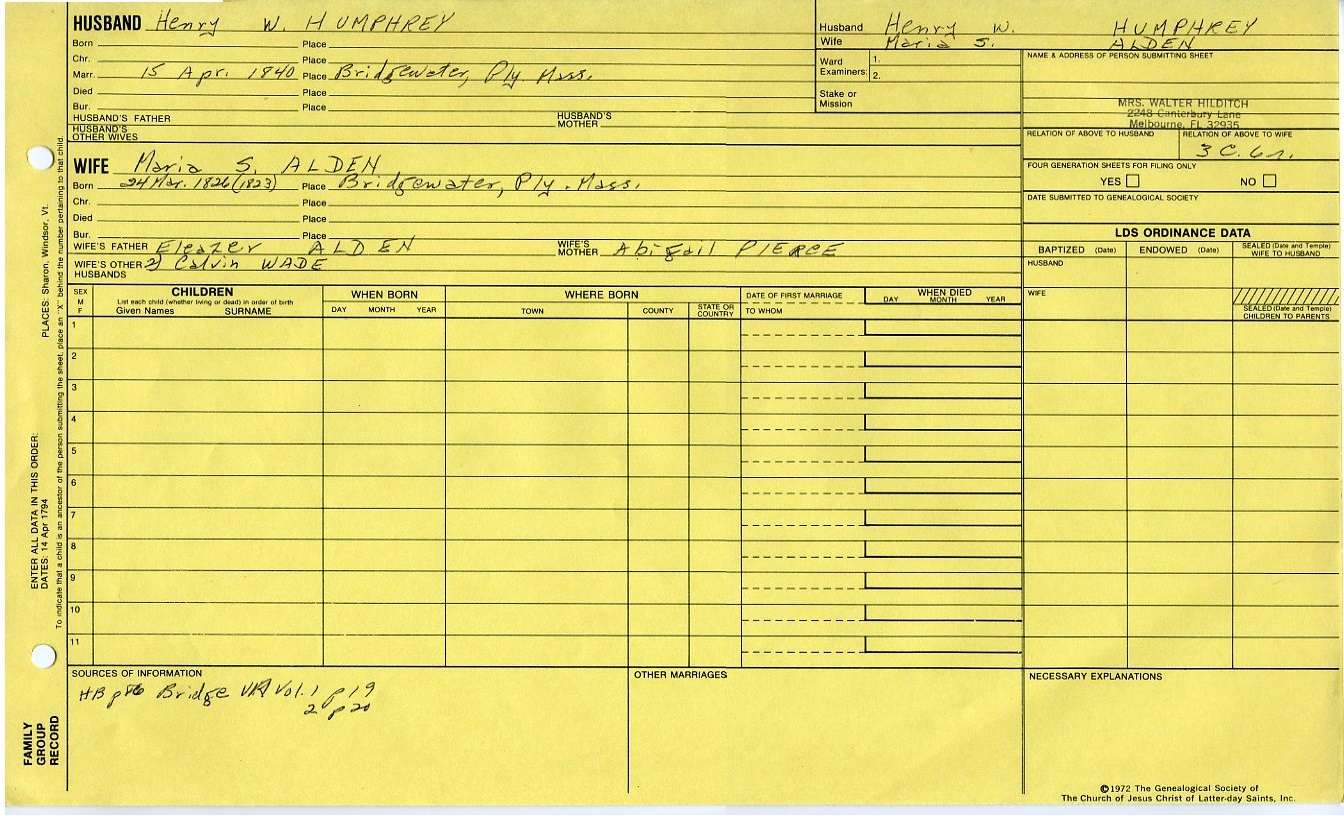 HUSBAND Henry W. HUMPHREY
Born Place
Chr. Place
Marr. 15 Apr. 1840 Place Bridgewater, Ply. Mass.
Died Place
Bur. Place
HUSBAND'S FATHER HUSBAND'S MOTHER
HUSBAND'S OTHER WIVES
Husband Henry W. HUMPHREY
Wife Maria S. ALDEN
Ward Examiners: 1.
2.
Stake or Mission
NAME & ADDRESS OF PERSON SUBMITTING SHEET
MRS. WALTER HILDITCH
2248 Canterbury Lane
Melbourne, FL 32935
RELATION OF ABOVE TO HUSBAND RELATION OF ABOVE TO WIFE
3 C. 6 r.
FOUR GENERATION SHEETS FOR FILING ONLY
YES NO
DATE SUBMITTED TO GENEALOGICAL SOCIETY
WIFE Maria S. ALDEN
Born 24 Mar. 1826 (1823) Place Bridgewater, Ply. Mass.
Chr. Place
Died Place
Bur. Place
WIFE'S FATHER Eleazer ALDEN WIFE'S MOTHER Abigail PIERCE
WIFE'S OTHER HUSBANDS 2) Calvin WADE
LDS ORDINANCE DATA
BAPTIZED (Date) ENDOWED (Date) SEALED (Date and Temple) WIFE TO HUSBAND
HUSBAND
WIFE
SEALED (Date and Temple) CHILDREN TO PARENTS
SEX M F
CHILDREN
List each child (whether living or dead) in order of birth
Given Names SURNAME
WHEN BORN
DAY MONTH YEAR
WHERE BORN
TOWN COUNTY STATE OR COUNTRY
DATE OF FIRST MARRIAGE
TO WHOM
WHEN DIED
DAY MONTH YEAR
1
2
3
4
5
6
7
8
9
10
11
SOURCES OF INFORMATION
HB p86 Bridge VR Vol. 1 p 19
2 p 20
OTHER MARRIAGES
NECESSARY EXPLANATIONS
©1972 The Genealogical Society of
The Church of Jesus Christ of Latter-day Saints, Inc.
FAMILY GROUP RECORD
ENTER ALL DATA IN THIS ORDER:
DATES: 14 Apr 1794 PLACES: Sharon, Windsor, Vt.
To indicate that a child is an ancestor of the person submitting the sheet, place an "X" behind the number pertaining to that child.